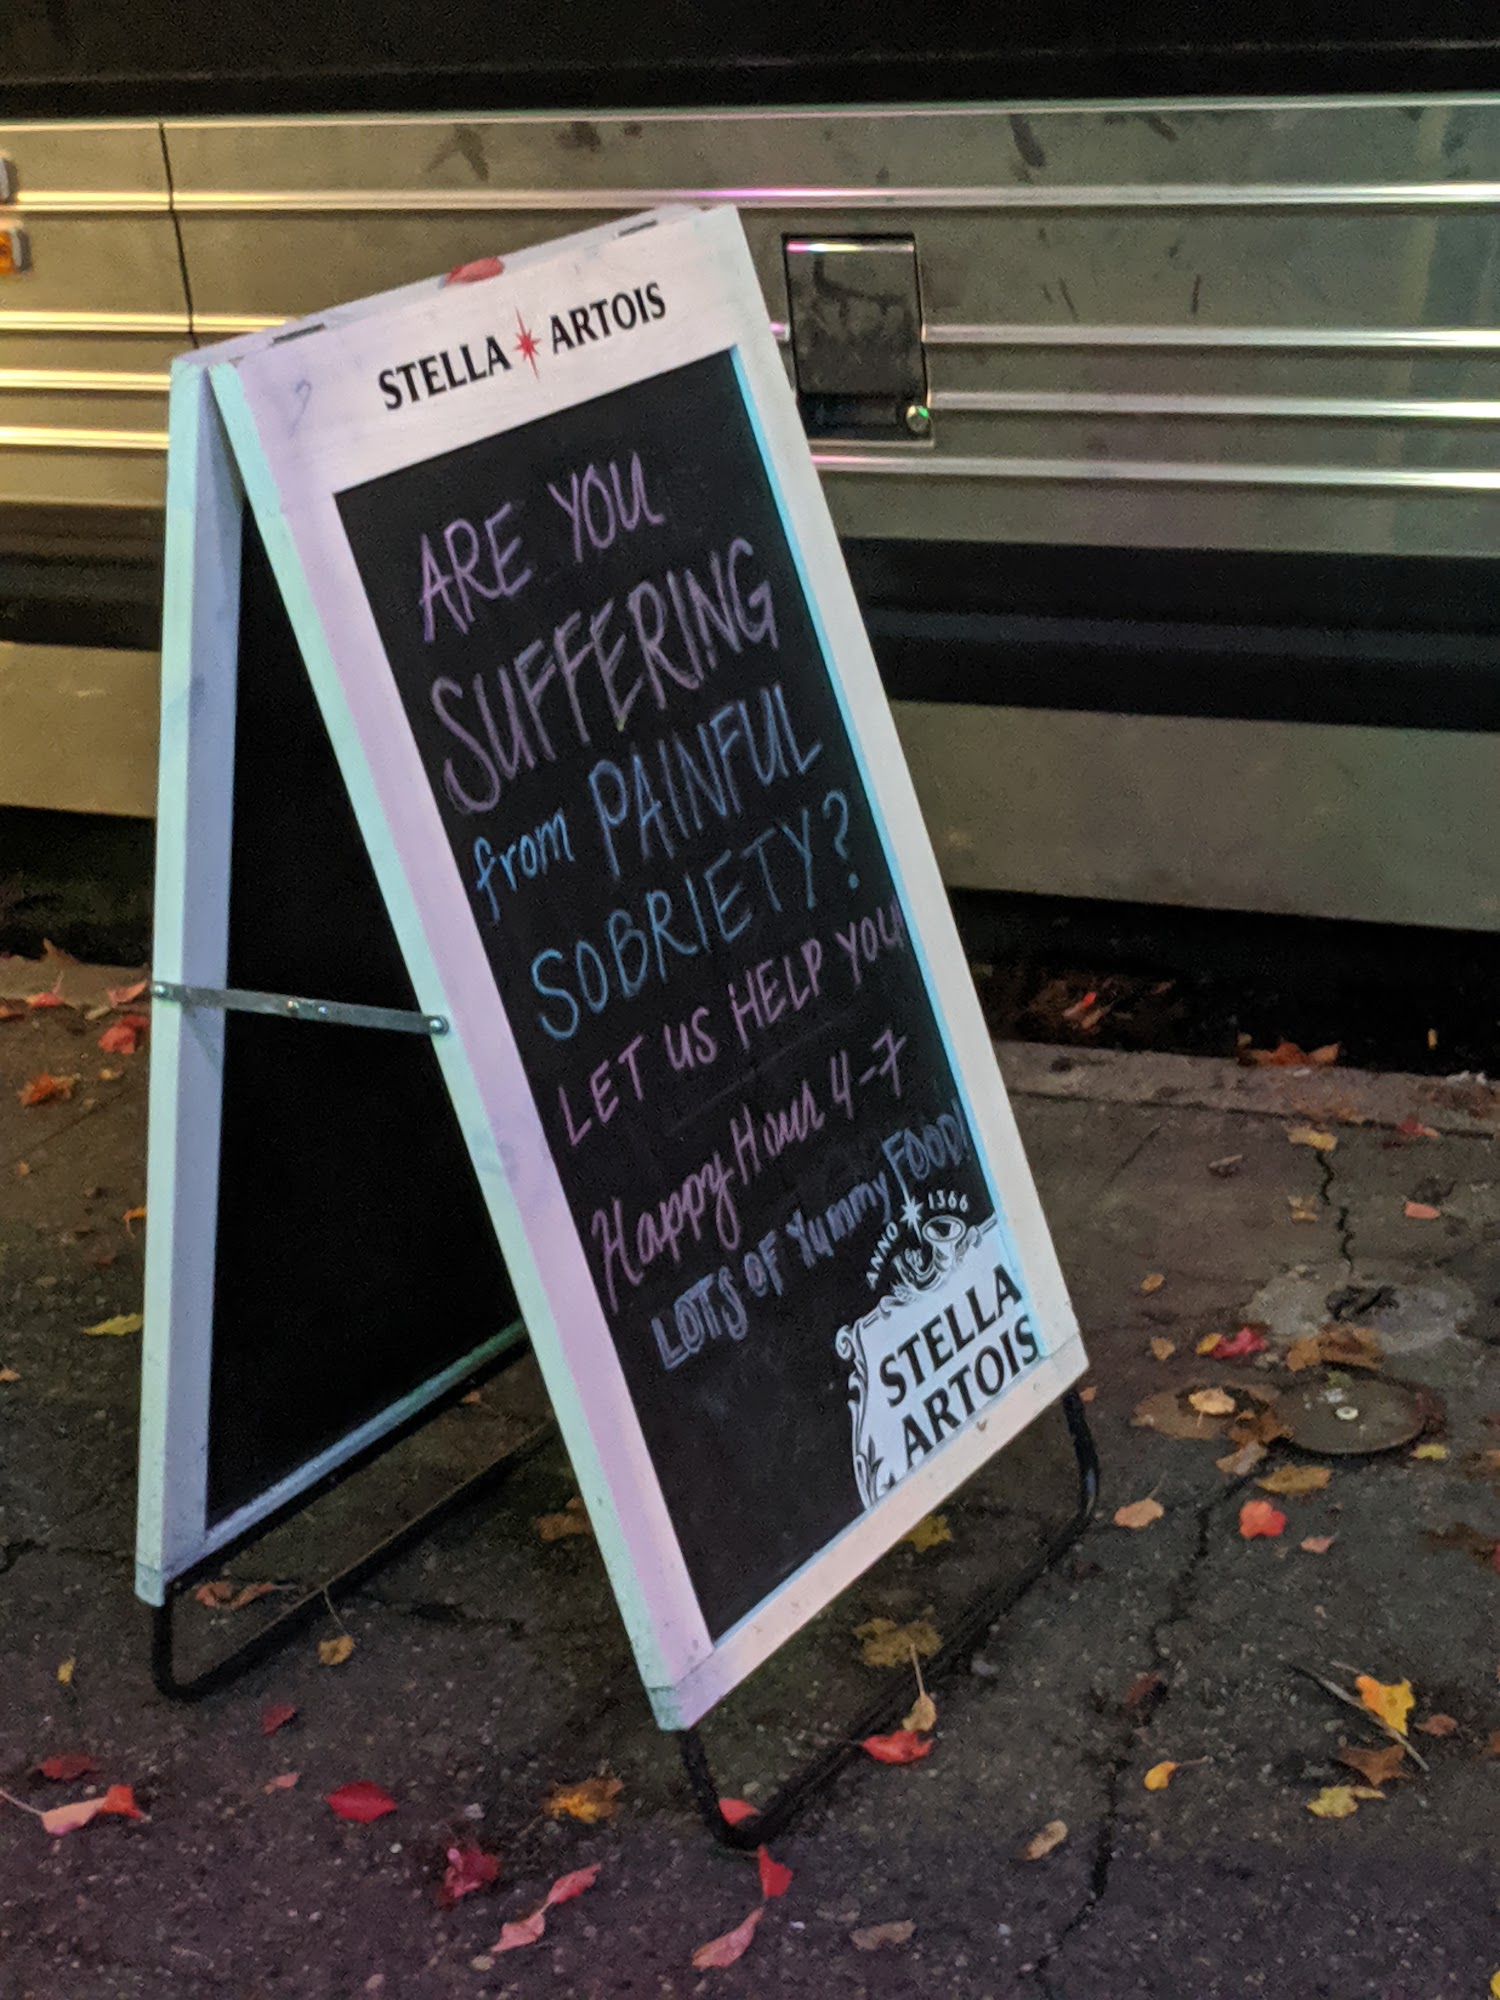 STELLA ARTOIS
ARE YOU
SUFFERING
from PAINFUL
SOBRIETY?
LET US HELP YOU!
Happy Hour 4-7
LOTS OF Yummy FOOD!
ANNO 1366
STELLA
ARTOIS